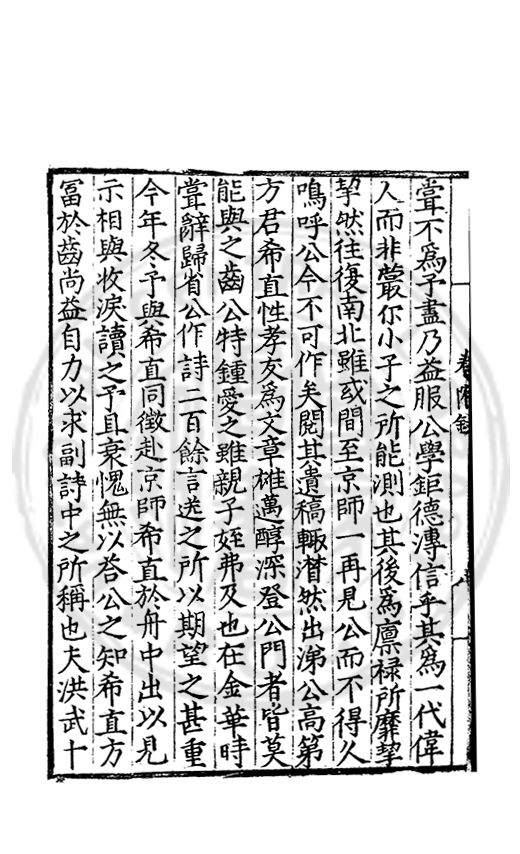 甞不爲予盡乃益服公學鉅德溥信乎其爲一代偉
人而非叢尔小子之所能測也其後爲廪禄所靡摯
摯然往復南北雖或間至京師一再見公而不得久
嗚呼公今不可作矣閱其遺稿輙潸然出涕公高第
方君希直性孝友爲文章雄邁醇深登公門者皆莫
能與之齒公特鍾愛之雖親子姪弗及也在金華時
甞辭歸省公作詩二百餘言送之所以期望之甚重
今年冬予與希直同徵赴京師希直於舟中出以見
示相與收淚讀之予且衰愧無以荅公之知希直方
冨於齒尚益自力以求副詩中之所稱也夫洪武十
卷附錄